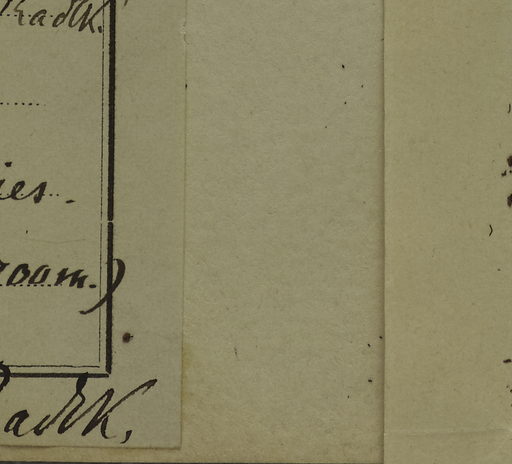 Radlk.
ies.
room.)
Radlk.